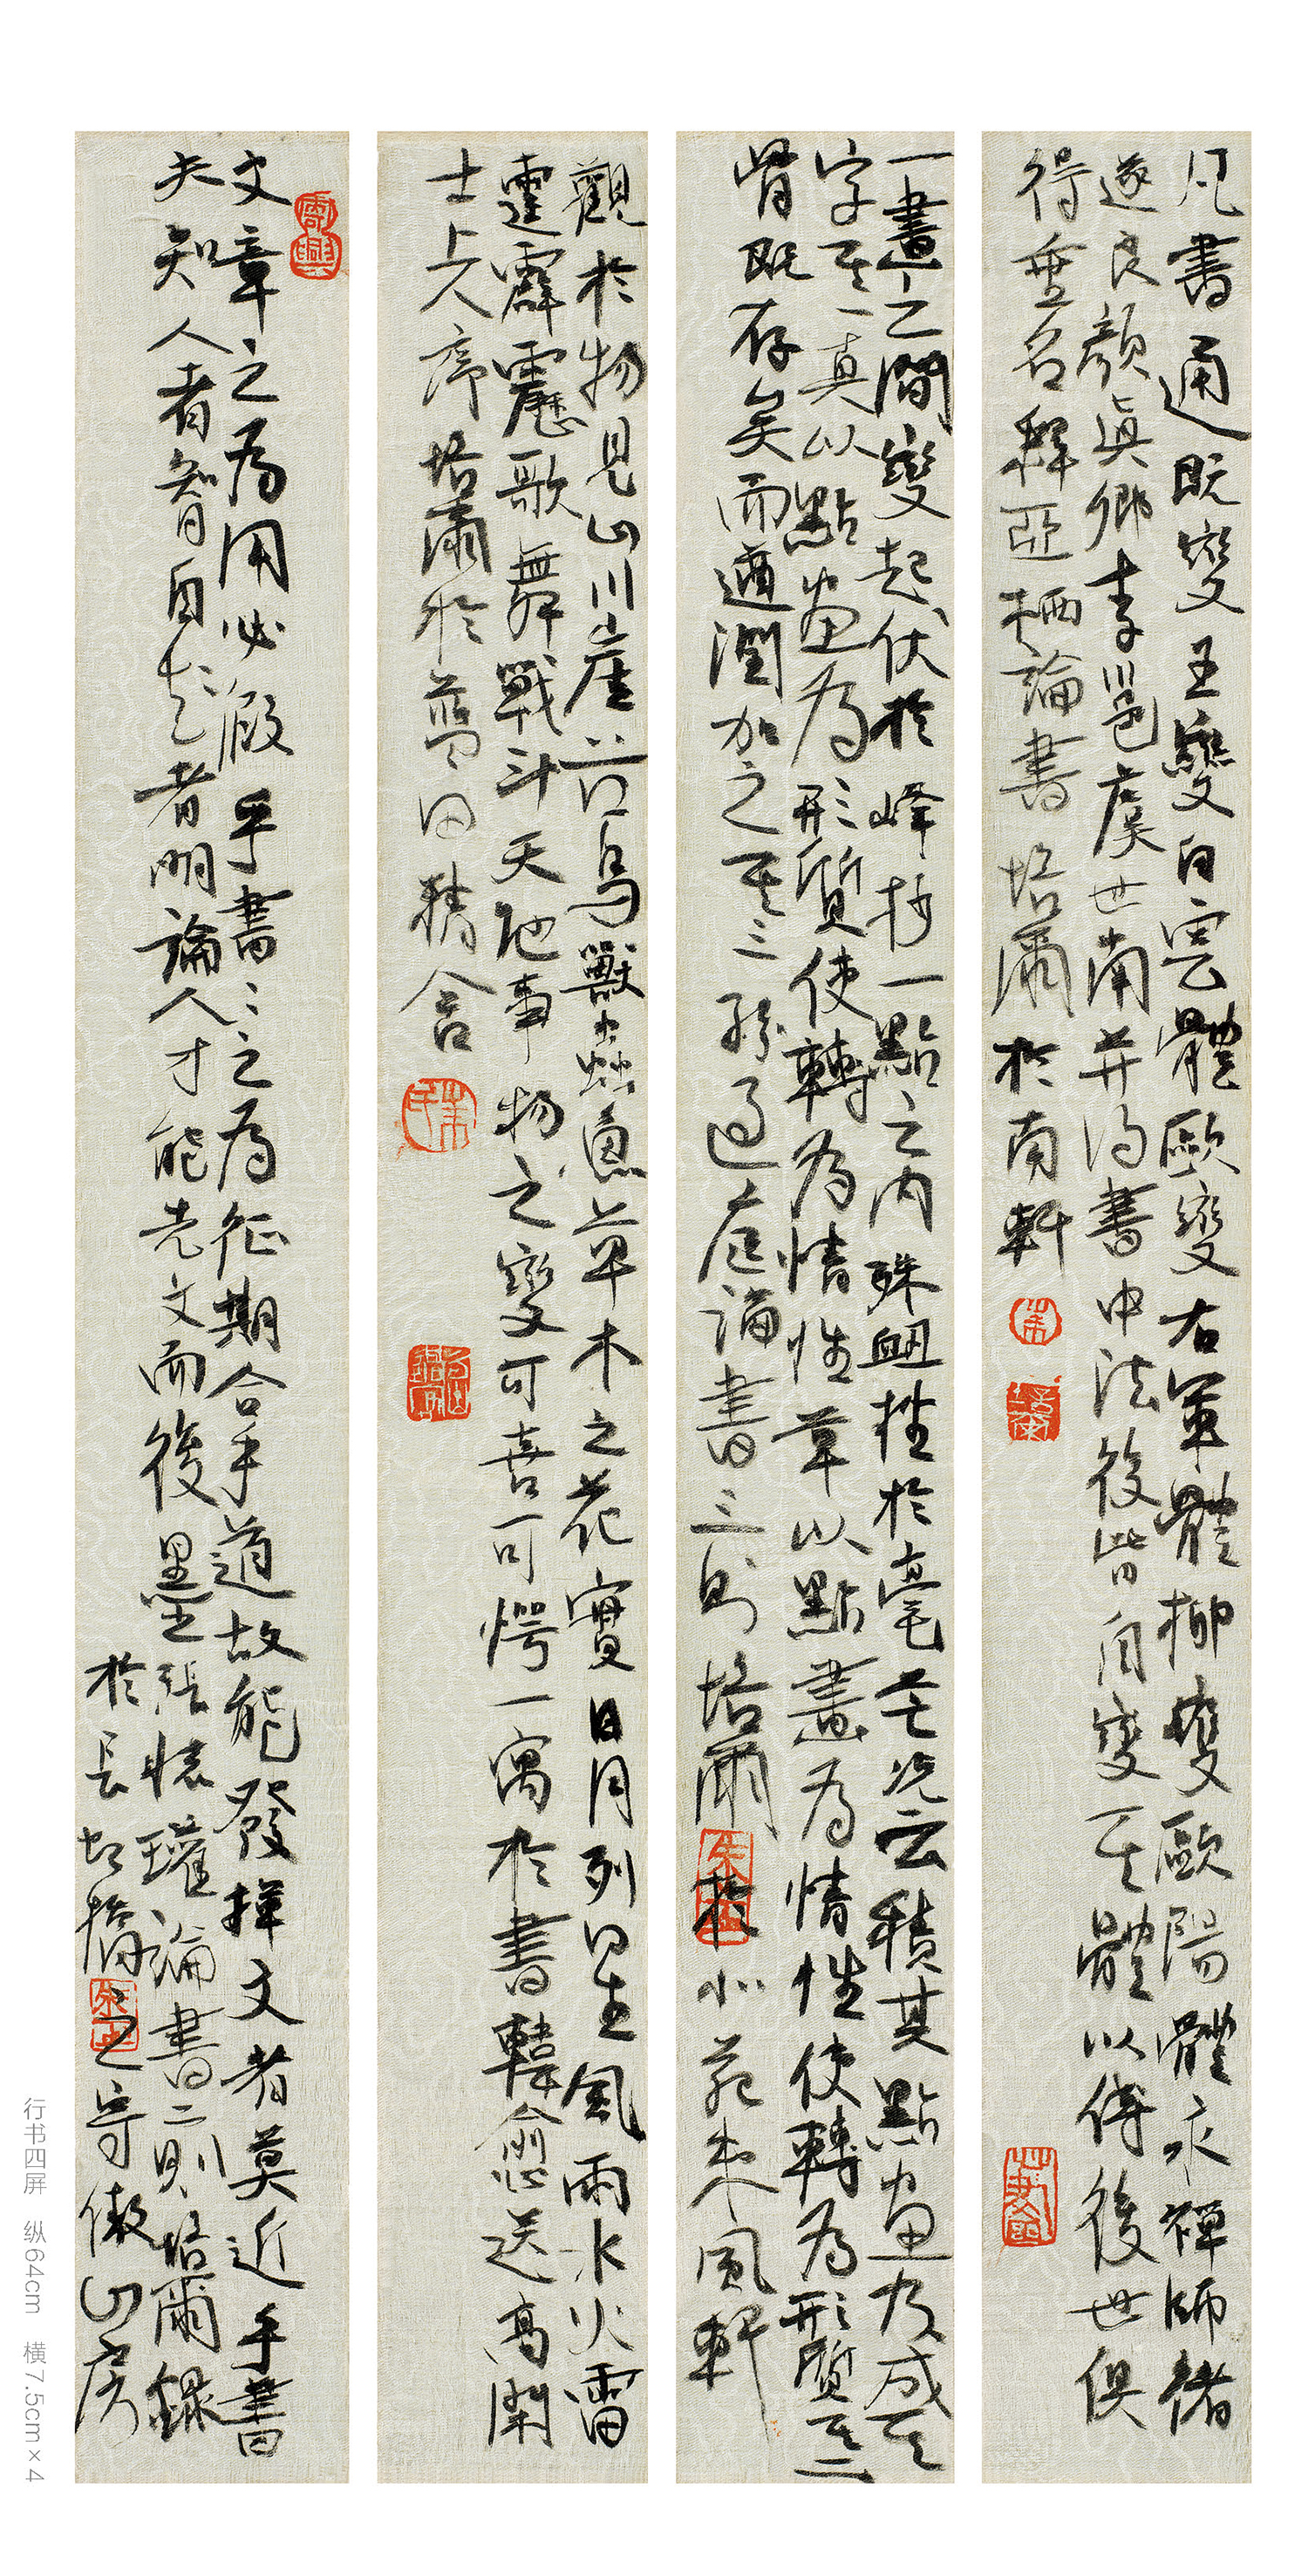 凡書通既變王變白雲體歐變右軍體柳變歐陽體永禪師褚
遂良顏真卿李邕虞世南并得書中法後皆自變其體以傳後世俱
得垂名釋亞栖論書 培爾於南軒
一畫之間變起伏於峰抄一點之内殊衄挫於毫芒況云積其點画乃成其
字其一真以點画為形質使轉為情性草以點畫為情性使轉為形質其二
骨既存矣而遒潤加之其三孫過庭論書三則 培爾於小苑東風軒
觀於物見山川崖谷鳥獸蟲魚草木之花實日月列星風雨水火雷
霆霹靂歌舞戰斗天地事物之變可喜可愕一寓於書韓愈送高閑
士上人序 培爾於藍田精舍
文章之為用必假乎書書之為征期合乎道故能發揮文者莫近乎書
夫知人者智自知者明論人才能先文而後墨 張懷瓘論書二則 培爾錄
於長虹橋之寄傲山房
行书四屏 纵64cm 横7.5cm×4